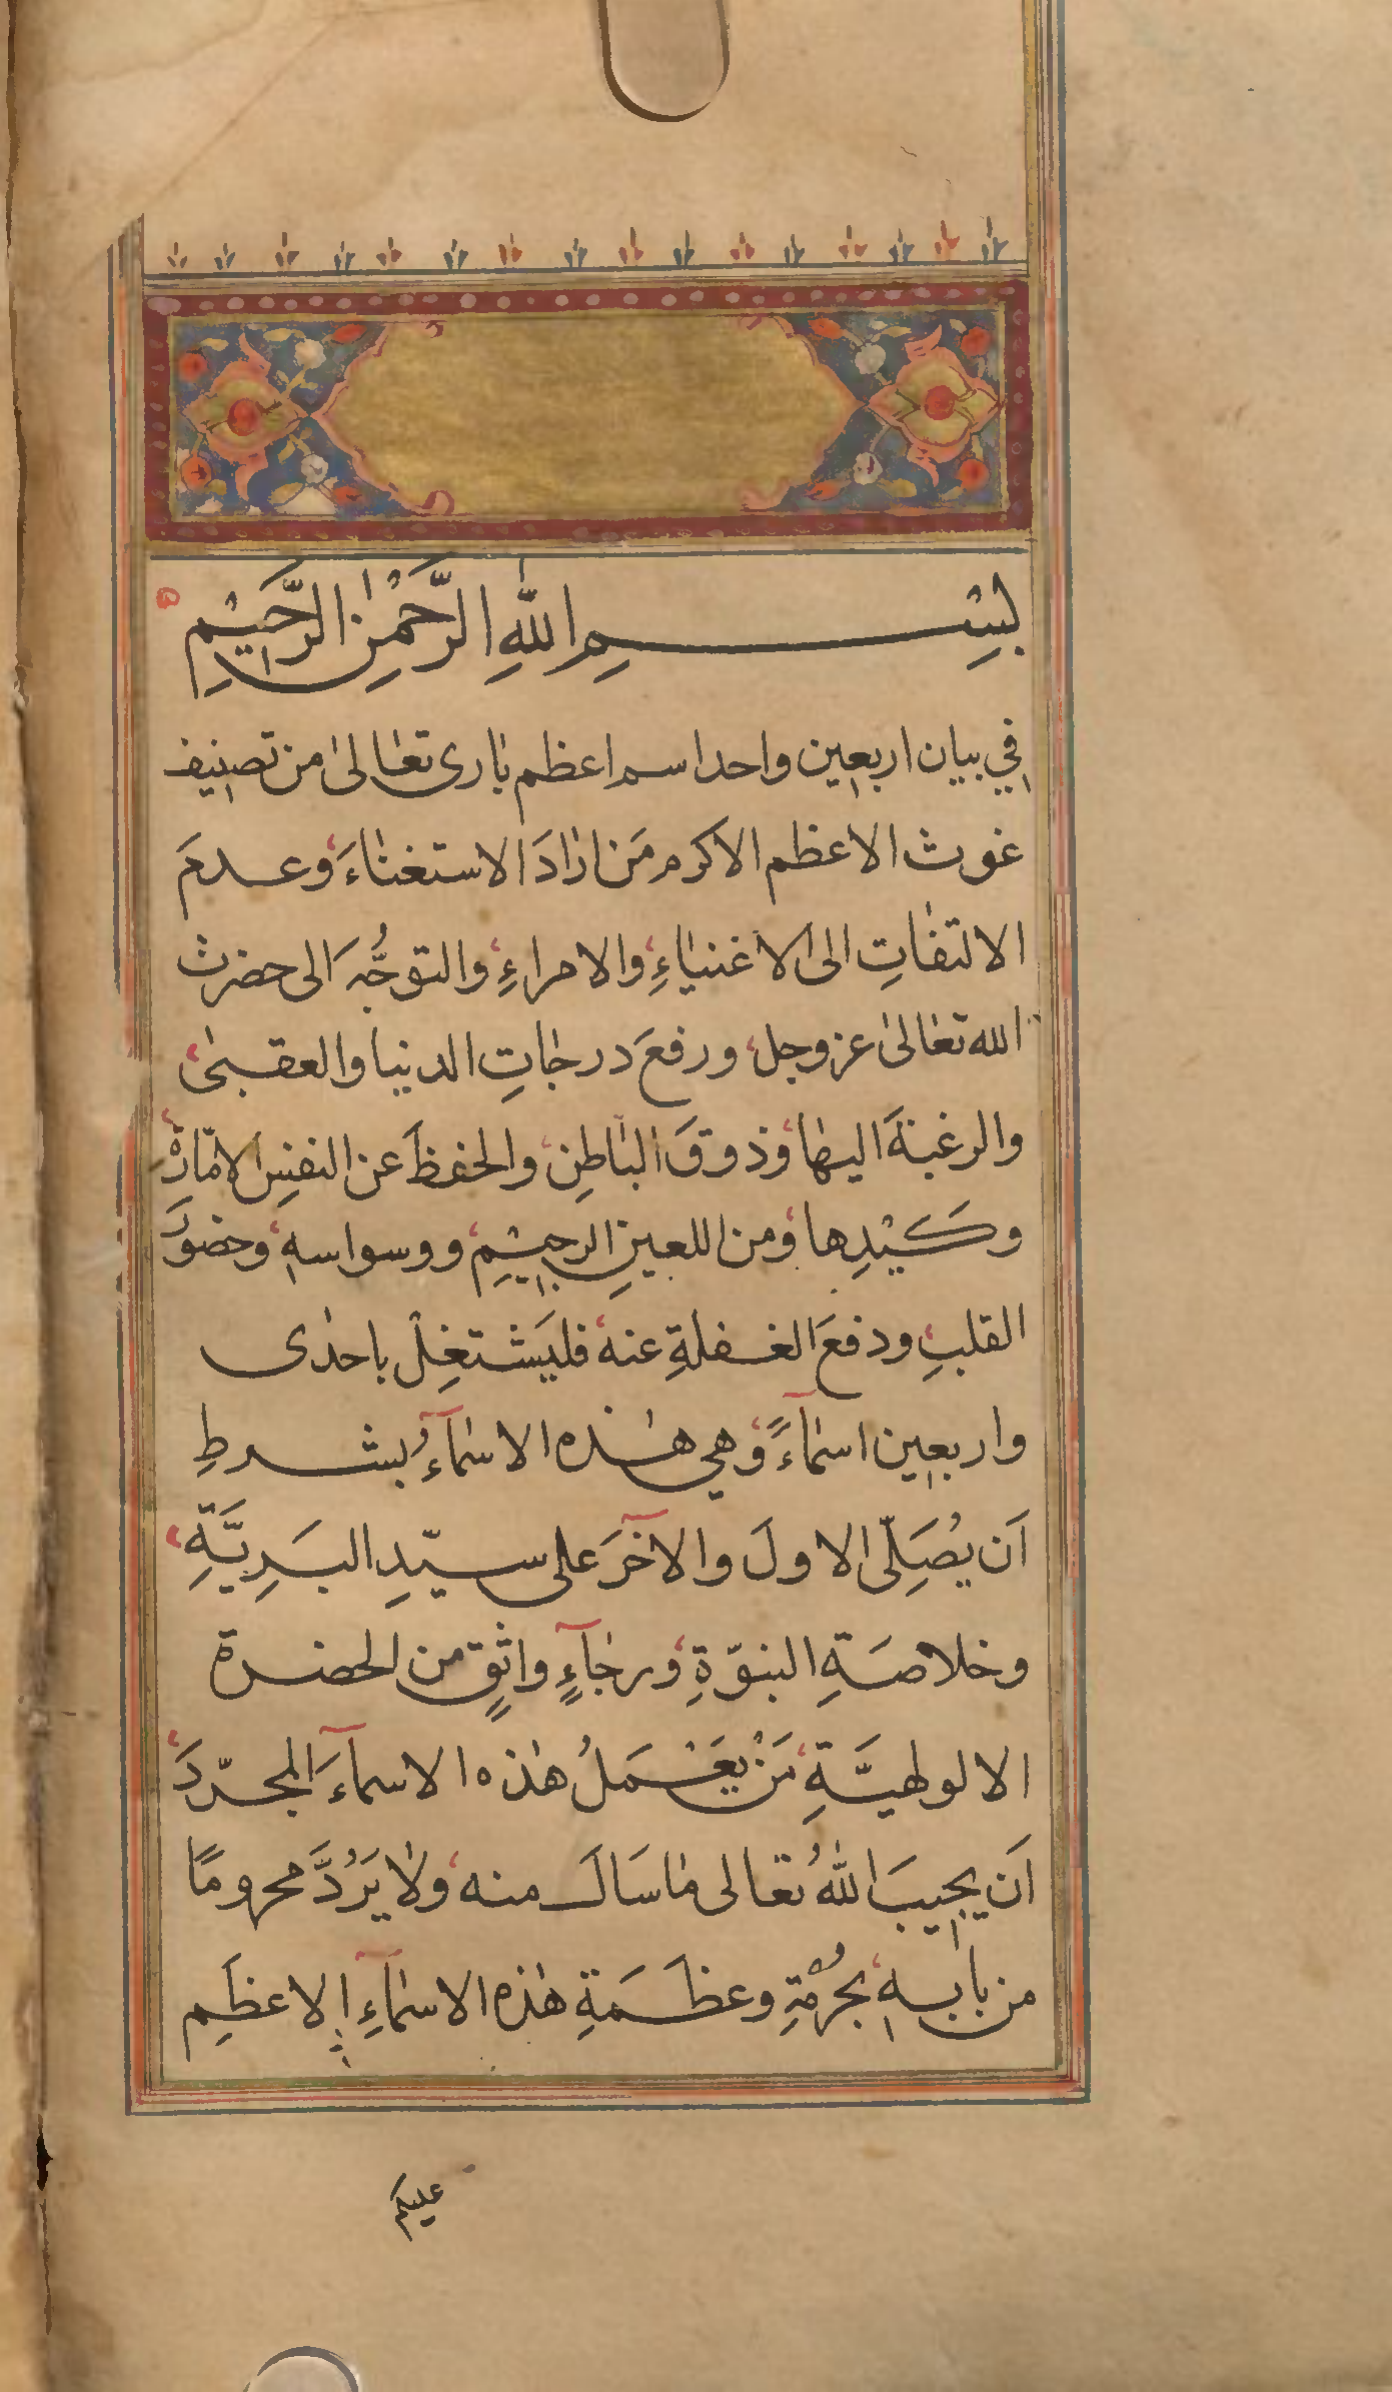 بِسْمِ اللهِ الرَّحْمٰنِ الرَّحِيْمِ
فِي بيان اربعين واحد اسم اعظم باری تعالیٰ من تصنیف
غوث الاعظم الاكرم مَن ارادَ الاستغناءَ وعدمَ
الالتفاتِ الى الاغنياءِ والامراءِ والتوجُّہَ الى حضرت
الله تعالىٰ عز وجل ورفعَ درجاتِ الدنيا والعقبىٰ
والرغبةَ اليها وذوقَ الباطِنِ والحفظَ عن النفسِ الامّارةِ
وكَيْدِها ومن اللعينِ الرجيْمِ ووسواسهٖ وحضورَ
القلبِ ودفعَ الغفلةِ عنه فليَشتغِلْ باحدٰى
واربعين اسماءً وهي هٰذه الاسماءُ بشرطِ
اَن يُصَلِّىَ الاولَ والآخرَ على سيّدِ البَرِيَّةِ
وخلاصَةِ النبوّةِ ورجاءٍ واثقٍ من الحضرة
الالوهيَّةِ مَنْ يَعْمَلُ هٰذه الاسماءَ المجرّدَ
اَن يجيبَ اللهُ تعالى ما سَاَلَ منه ولا يَرُدَّ محرومًا
من بابهٖ بحُرْمَةِ وعظَمَةِ هٰذه الاسماءِ الاعظَمِ
عليكم